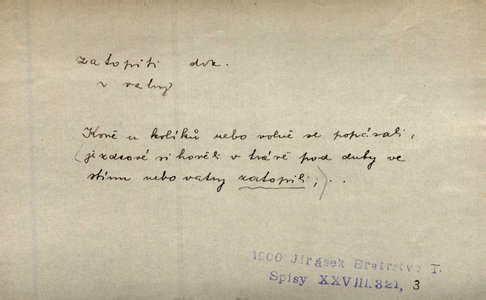 zatopiti dok.
v vatry
Koně u kolíků nebo volně se popásali,
(jezdcové si hověli v trávě pod duby ve
stínu nebo vatry zatopili;) . .
1900 Jirásek Bratrstvo I.
Spisy XXVIII.321, 3